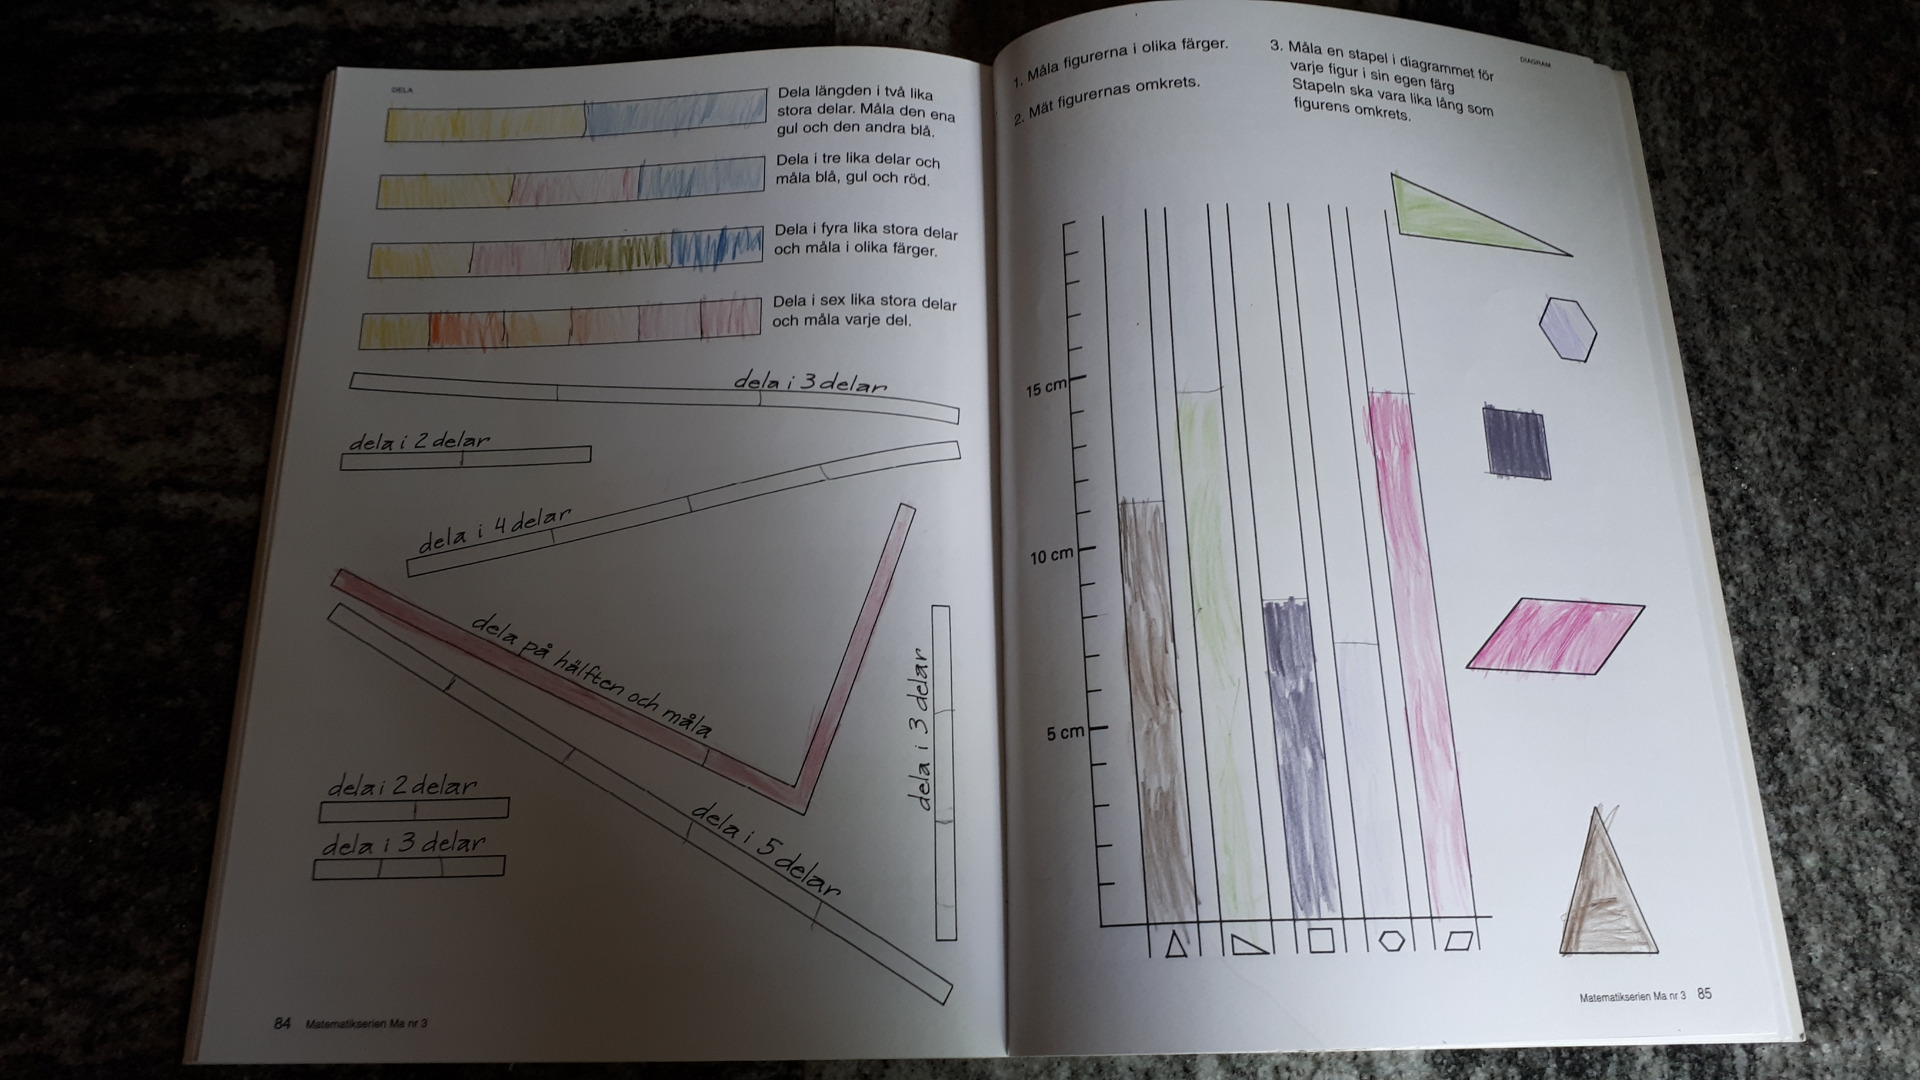 DELA
Dela längden i två lika
stora delar. Måla den ena
gul och den andra blå.
Dela i tre lika delar och
måla blå, gul och röd.
Dela i fyra lika stora delar
och måla i olika färger.
Dela i sex lika stora delar
och måla varje del.
dela i 3 delar
dela i 2 delar
dela i 4 delar
dela på hälften och måla
dela i 3 delar
dela i 5 delar
dela i 2 delar
dela i 3 delar
84 Matematikserien Ma nr 3
DIAGRAM
1. Måla figurerna i olika färger.
2. Mät figurernas omkrets.
3. Måla en stapel i diagrammet för
varje figur i sin egen färg
Stapeln ska vara lika lång som
figurens omkrets.
15 cm
10 cm
5 cm
Matematikserien Ma nr 3 85